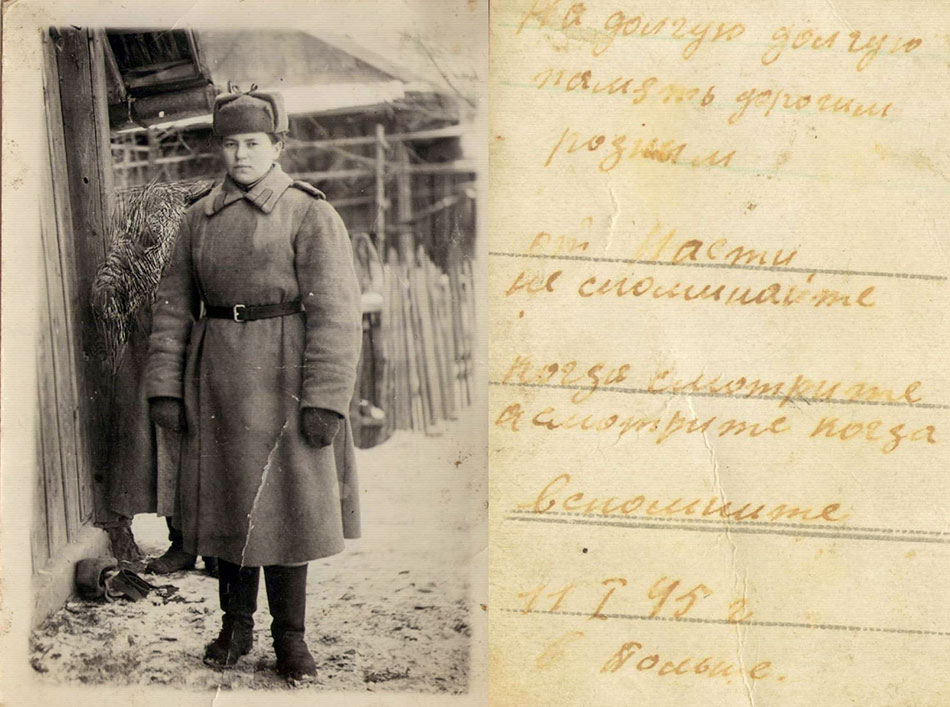 На долгую долгую
память дорогим
розным
от Насти
не споминайте
когда смотрите
а смотрите когда
вспомните
11 I 45 г
в Польше.